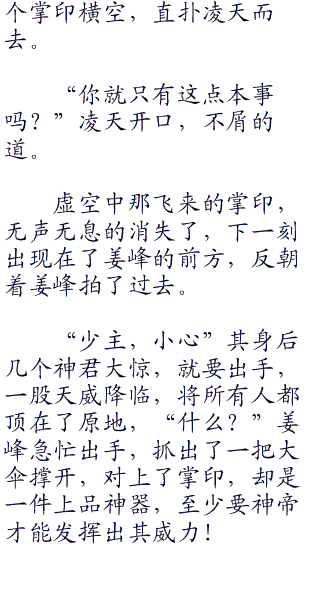 个掌印横空，直扑凌天而
去。
“你就只有这点本事
吗？”凌天开口，不屑的
道。
虚空中那飞来的掌印，
无声无息的消失了，下一刻
出现在了姜峰的前方，反朝
着姜峰拍了过去。
“少主，小心”其身后
几个神君大惊，就要出手，
一股天威降临，将所有人都
顶在了原地，“什么？”姜
峰急忙出手，抓出了一把大
伞撑开，对上了掌印，却是
一件上品神器，至少要神帝
才能发挥出其威力！